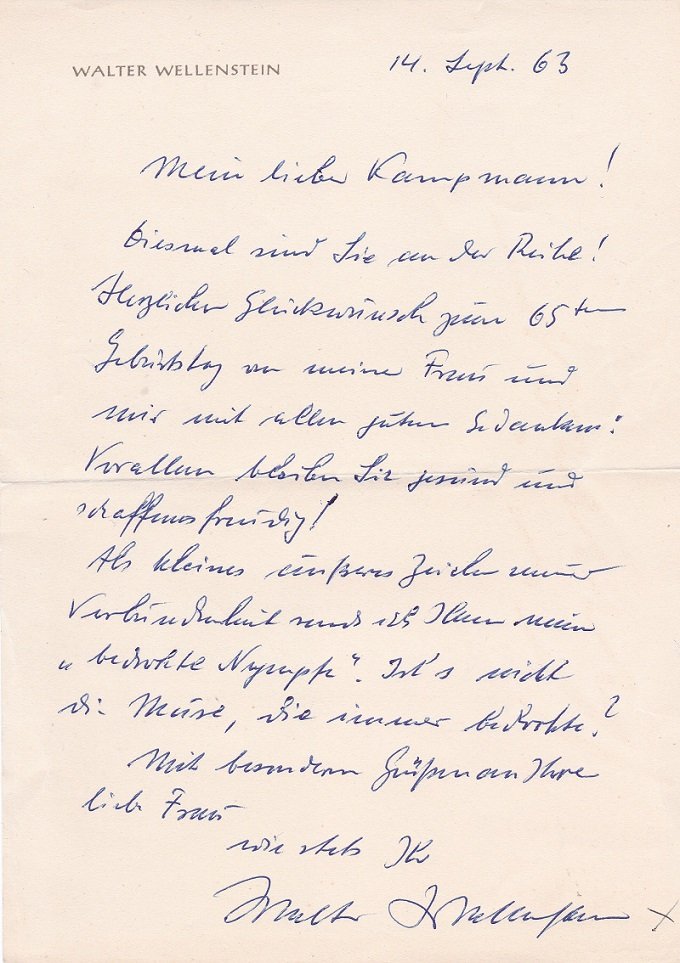 WALTER WELLENSTEIN
14. Sept. 63
Mein lieber Kampmann!
Diesmal sind Sie an der Reihe!
Herzlichen Glückwunsch zum 65ten
Geburtstag von meiner Frau und
mir mit allen guten Gedanken:
Vorallem bleiben Sie gesund und
schaffensfreudig!
Als kleines äußeres Zeichen meiner
Verbundenheit sende ich Ihnen meine
„bedrohte Nymphe". Ist's nicht
die Muse, die immer bedrohte?
Mit besondern Grüßen an Ihre
liebe Frau
wie stets Ihr
Walter Wellenstein